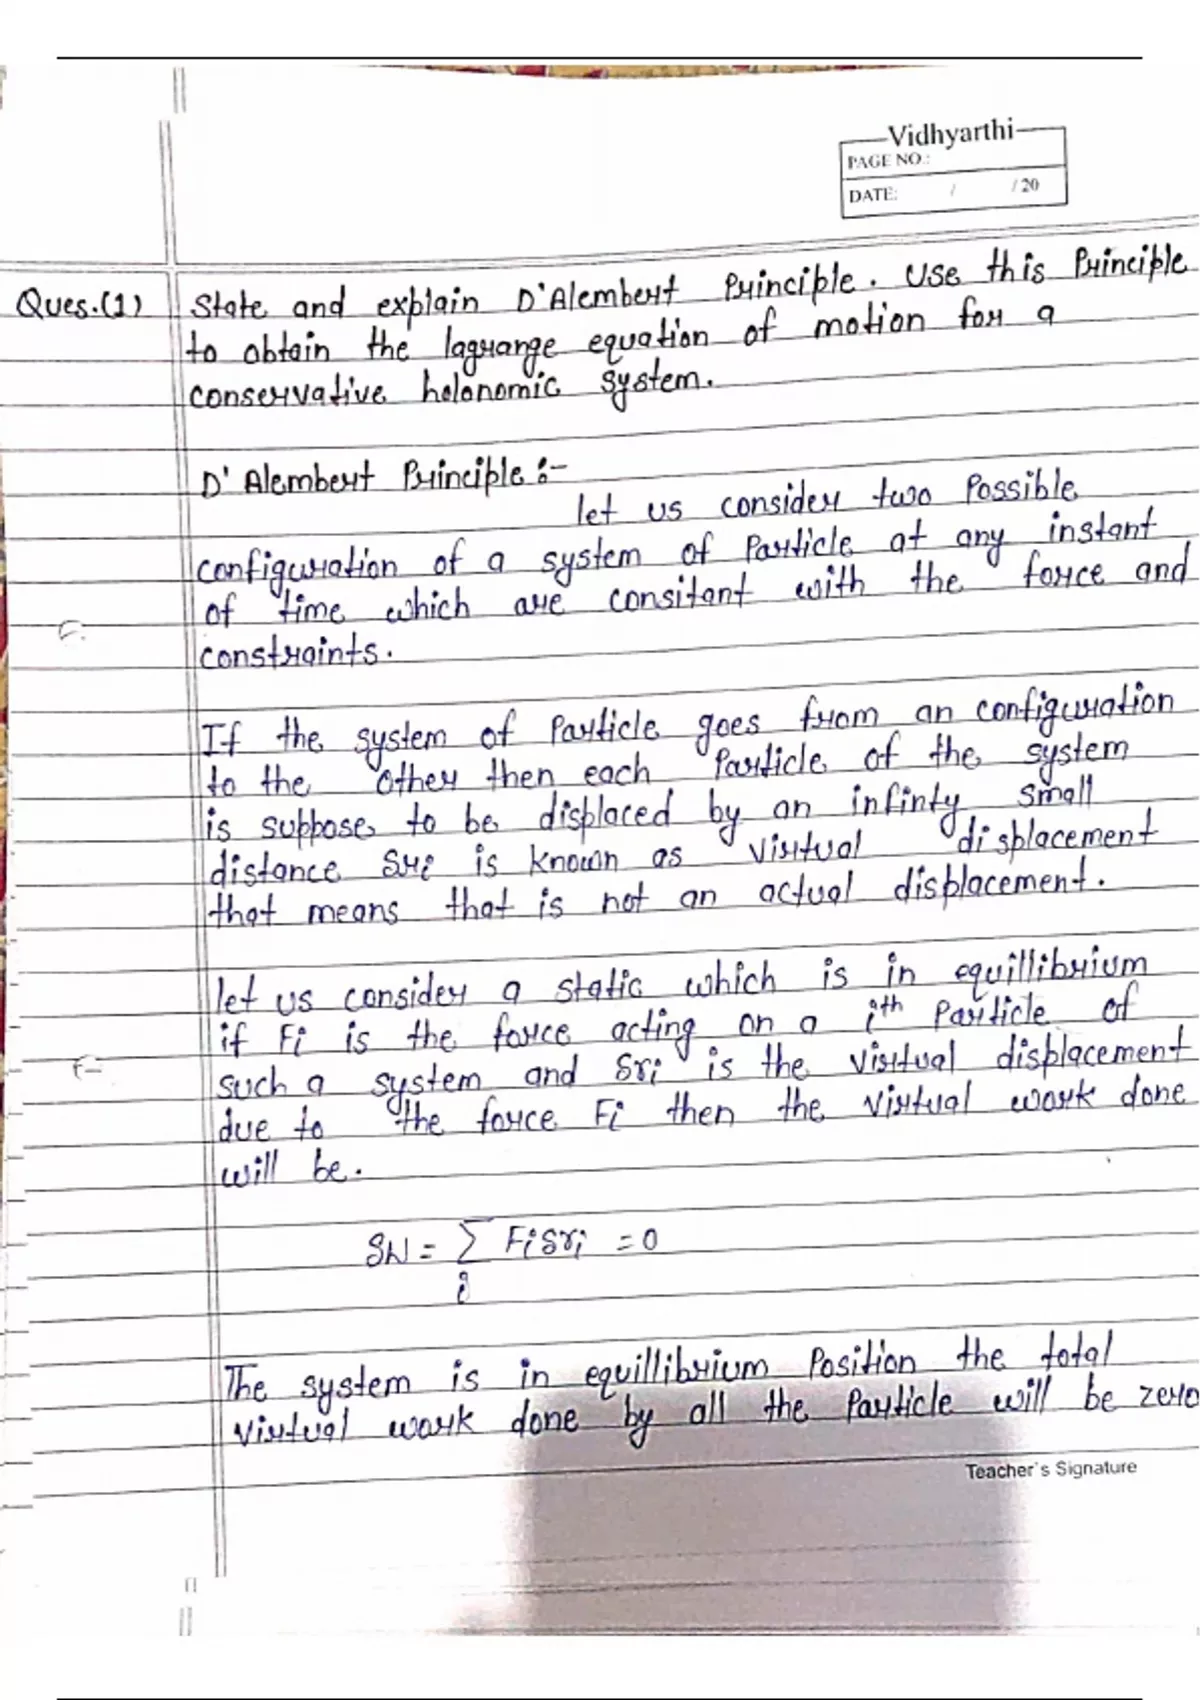 Vidhyarthi
PAGE NO.:
DATE: / /20
Ques.(1) State and explain D'Alembert Principle. Use this Principle
to obtain the lagrange equation of motion for a
conservative holonomic system.
D' Alembert Principle :-
let us consider two Possible
configuration of a system of Particle at any instant
of time which are consitant with the force and
constraints.
If the system of Particle goes from an configuration
to the other then each Particle of the system
is suppose to be displaced by an infinty small
distance δri is known as virtual displacement
that means that is not an actual displacement.
let us consider a static which is in equillibrium
if Fi is the force acting on a ith Particle of
such a system and δri is the virtual displacement
due to the force Fi then the virtual work done
will be.
δW = ∑ Fi δri = 0
i
The system is in equillibrium Position the total
virtual work done by all the Particle will be zero
Teacher's Signature